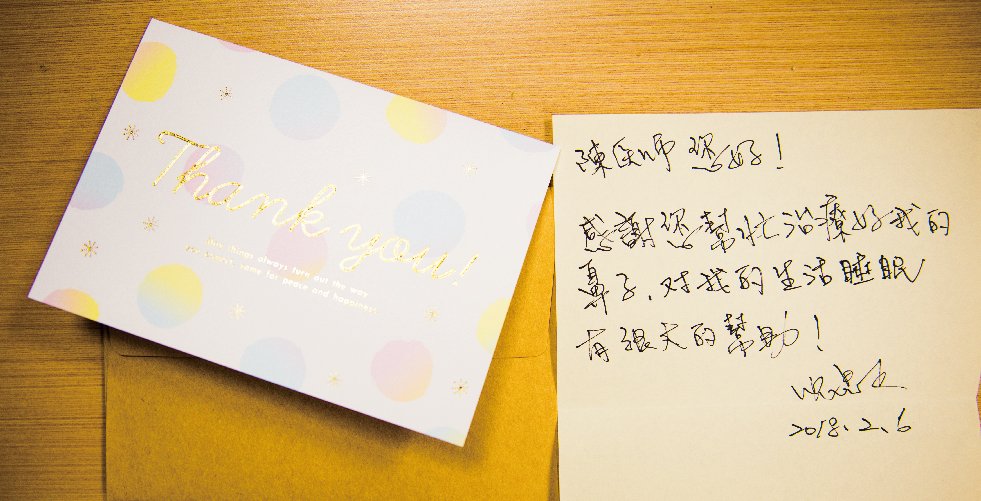 Thank you!
things always turn out the way
for peace and happiness.
陳医师 您好!
感謝您幫忙治療好我的
鼻子.对我的生活睡眠
有很大的幫助!
2018.2.6